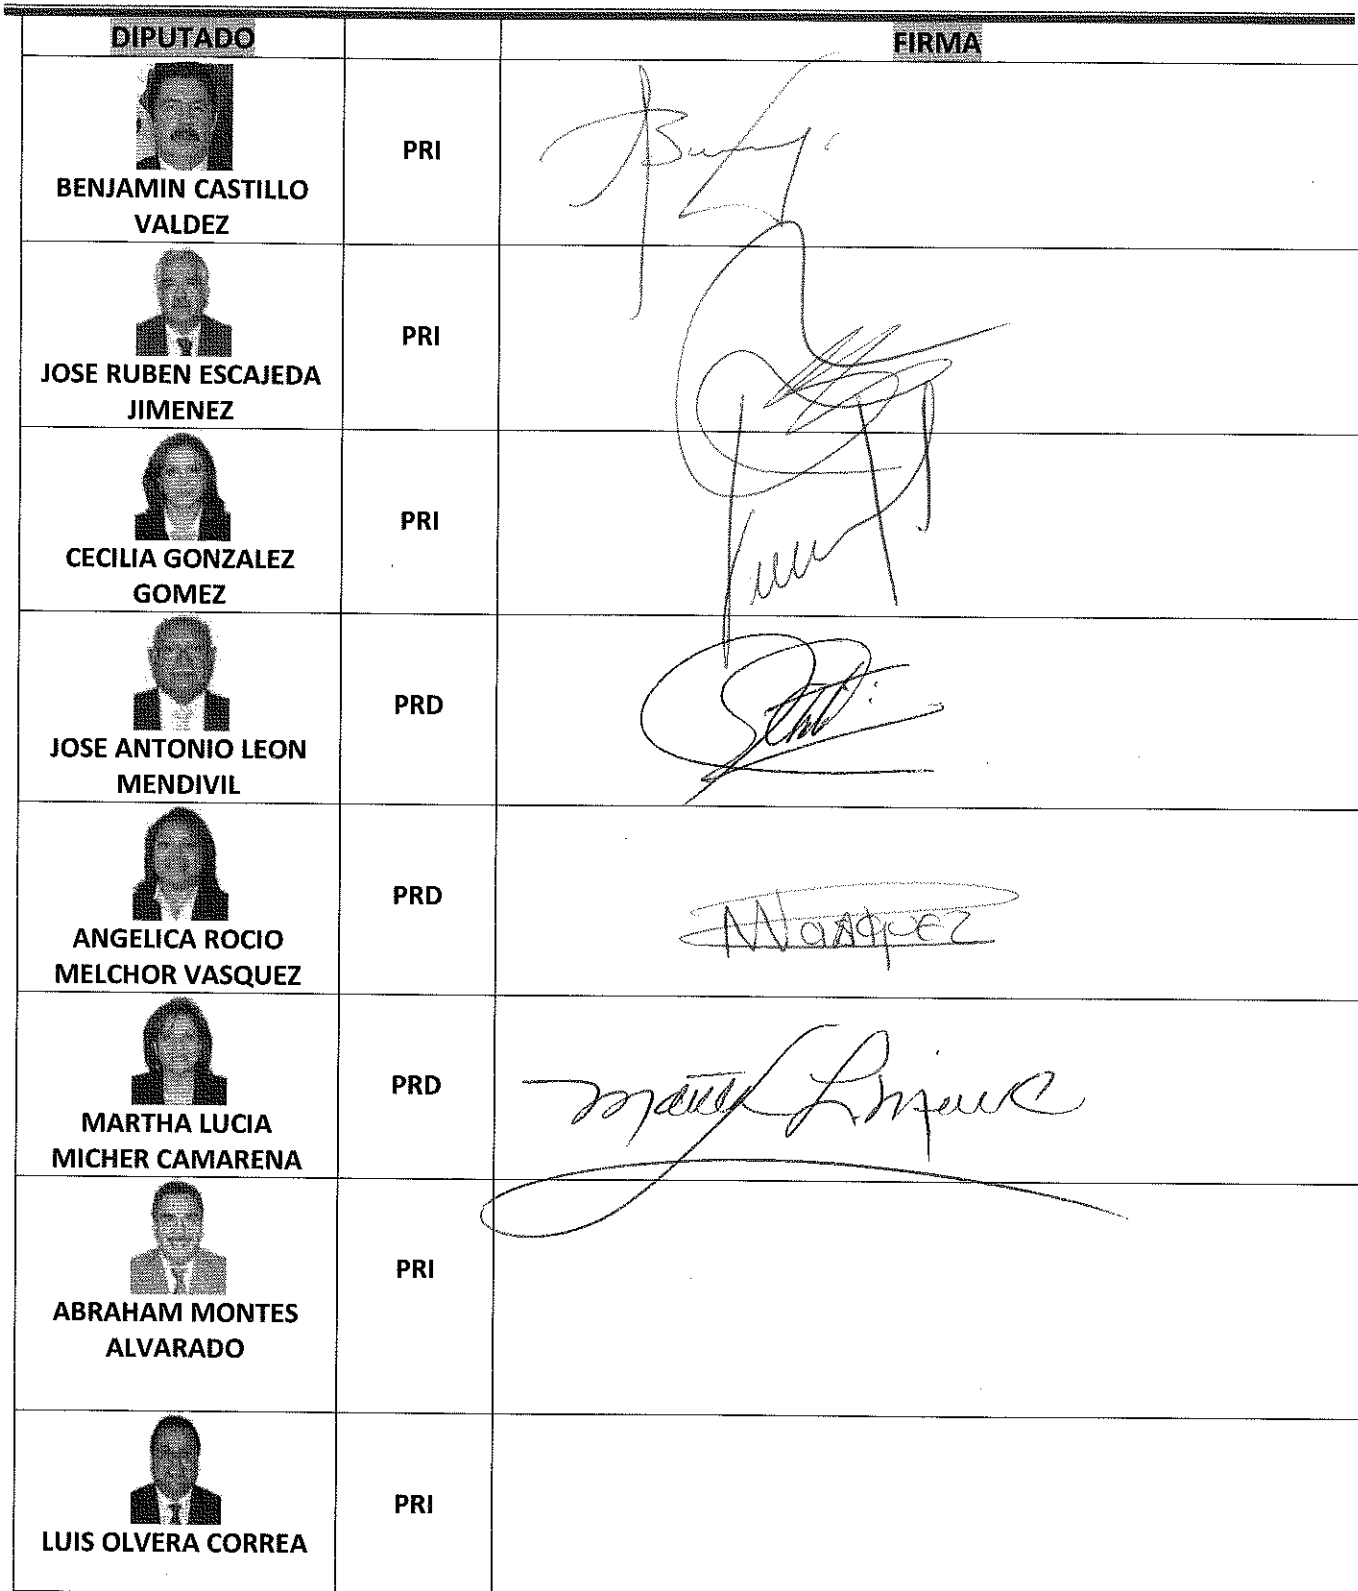 DIPUTADO FIRMA
BENJAMIN CASTILLO
VALDEZ
PRI
JOSE RUBEN ESCAJEDA
JIMENEZ
PRI
CECILIA GONZALEZ
GOMEZ
PRI
JOSE ANTONIO LEON
MENDIVIL
PRD
ANGELICA ROCIO
MELCHOR VASQUEZ
PRD
MARTHA LUCIA
MICHER CAMARENA
PRD
ABRAHAM MONTES
ALVARADO
PRI
LUIS OLVERA CORREA
PRI